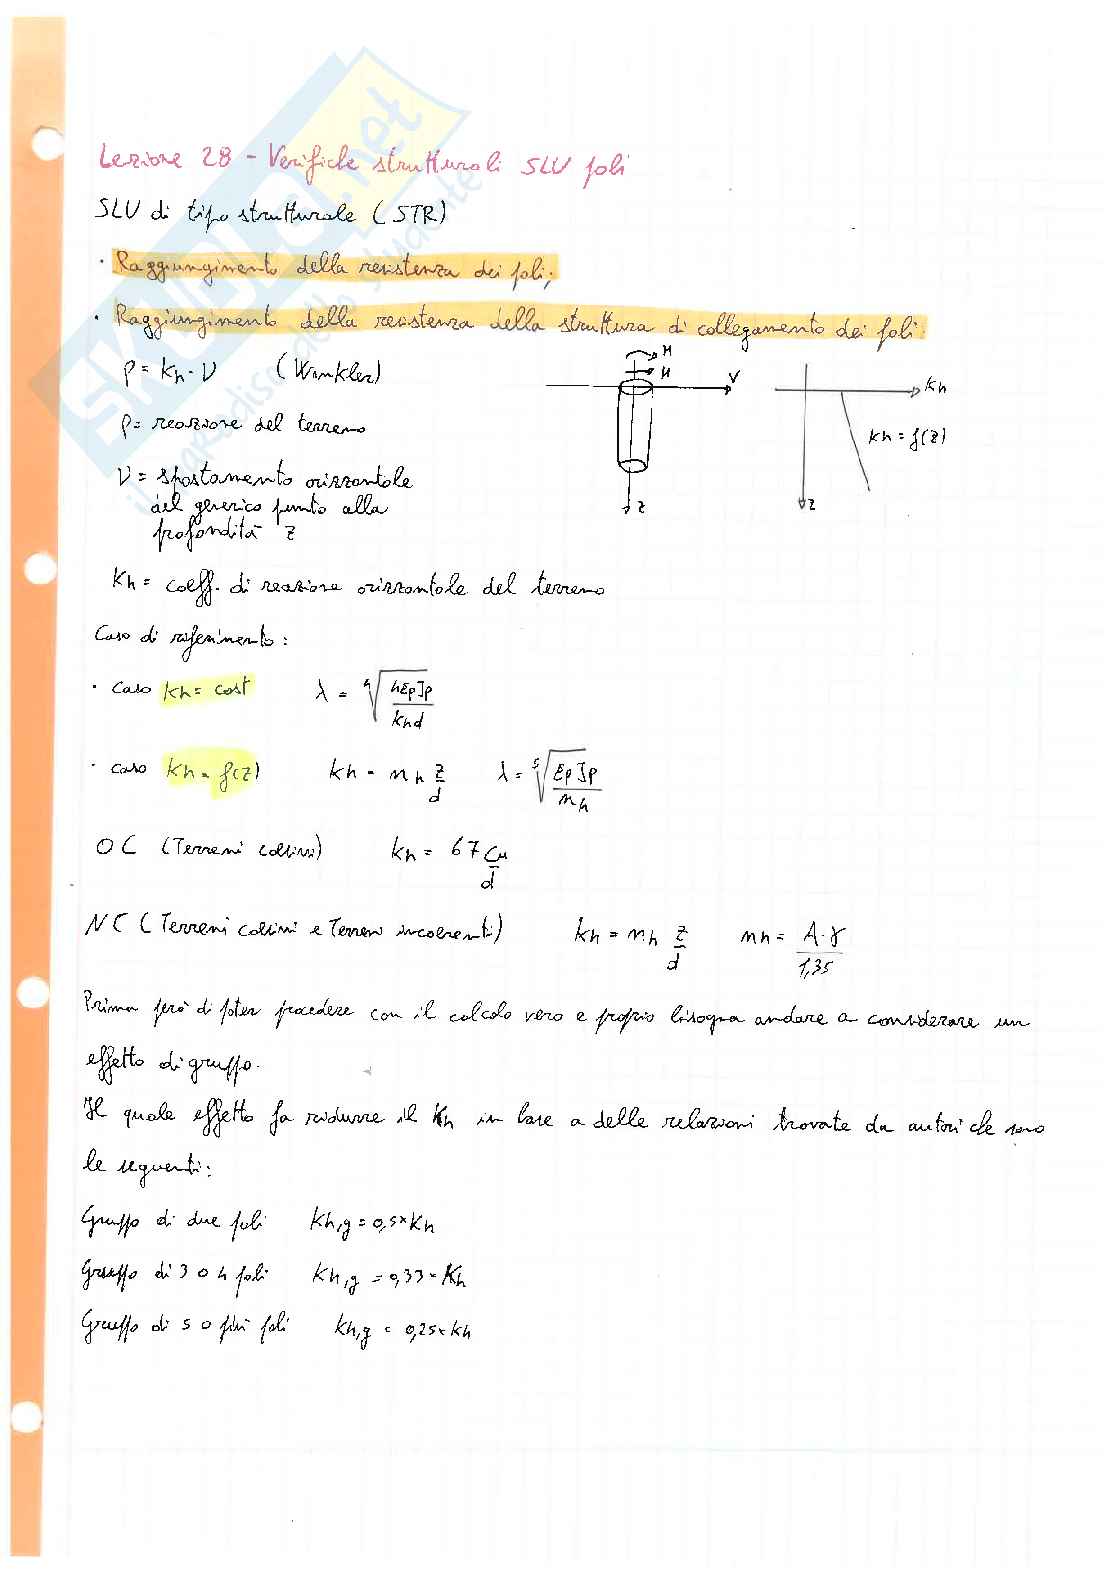 Lezione 28 - Verifiche strutturali SLU pali
SLU di tipo strutturale (STR)
· Raggiungimento della resistenza dei pali;
· Raggiungimento della resistenza della struttura di collegamento dei pali.
p = kh · v (Winkler)
M
H
v
z
kh
kh = f(z)
z
p = reazione del terreno
v = spostamento orizzontale
del generico punto alla
profondità z
kh = coeff. di reazione orizzontale del terreno
Caso di riferimento:
· caso kh = cost λ = ⁴√(4EpJp / khd)
· caso kh = f(z) kh = nh z/d λ = ⁵√(EpJp / nh)
OC (Terreni coesivi) kh = 67 Cu/d
NC (Terreni coesivi e Terreni incoerenti) kh = nh z/d nh = A·γ / 1,35
Prima però di poter procedere con il calcolo vero e proprio bisogna andare a considerare un
effetto di gruppo.
Il quale effetto fa ridurre il kh in base a delle relazioni trovate da autori che sono
le seguenti:
Gruppo di due pali kh,g = 0,5 × kh
Gruppo di 3 o 4 pali kh,g = 0,33 × kh
Gruppo di 5 o più pali kh,g = 0,25 × kh
SKUOLA.net
il paradiso dello studente